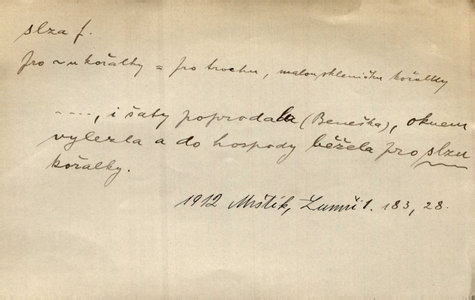 slza f.
pro ~u kořalky = pro trochu, malou skleničku kořalky
....., i šaty poprodala (Beneška), oknem
vylezla a do hospody běžela pro slzu
kořalky.
1912 Mrštík, Zumři 1. 183, 28.